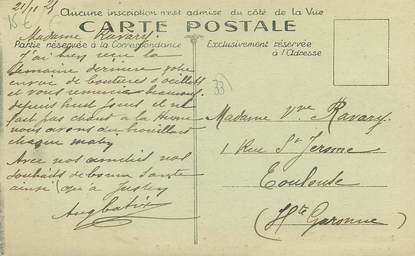 21/11 25
15 €
Aucune inscription n'est admise du côté de la Vue
CARTE POSTALE
Partie réservée à la Correspondance
Exclusivement réservée
à l'Adresse
Madame Ravary.
J'ai bien reçu la
semaine dernière votre
envoi de boutures d'oeillets
et vous remercie beaucoup
depuis huit jours il ne
fait pas chaud a la
nous avons du brouillard
chaque matin
Avec nos amitiés nos
souhaits de bonne santé
ainsi qu'a
33
Madame Vve Ravary.
1 Rue St Jerome
Toulouse
(Hte Garonne)